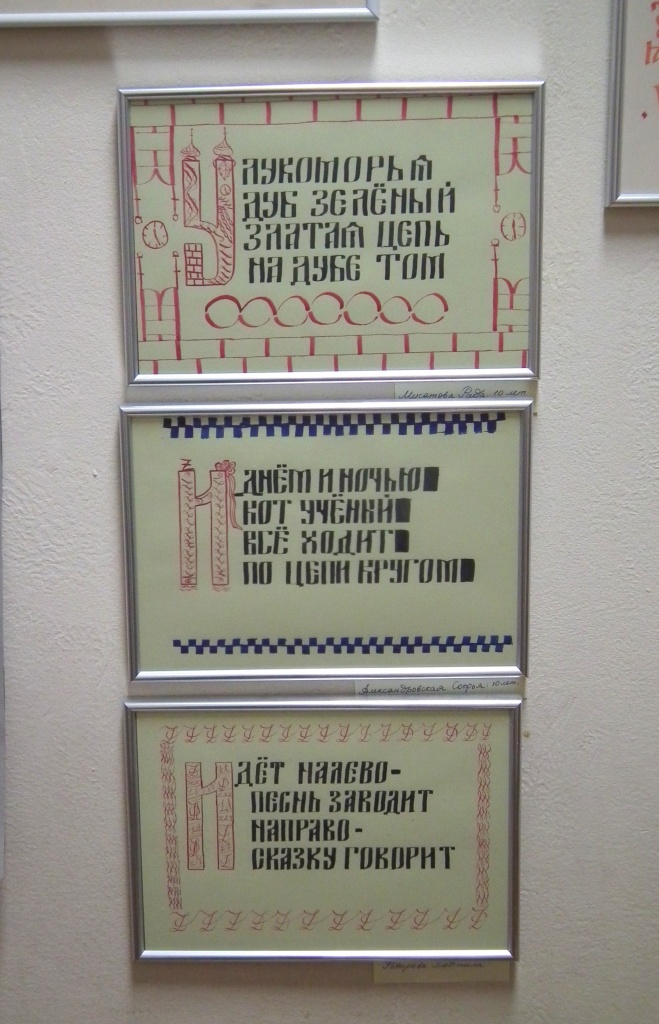 У ЛУКОМОРЬЯ
ДУБ ЗЕЛЁНЫЙ
ЗЛАТАЯ ЦЕПЬ
НА ДУБЕ ТОМ
Рада 10 лет
И ДНЁМ И НОЧЬЮ
КОТ УЧЁНЫЙ
ВСЁ ХОДИТ
ПО ЦЕПИ КРУГОМ
Александровская Софья 10 лет
ИДЁТ НАЛЕВО-
ПЕСНЬ ЗАВОДИТ
НАПРАВО-
СКАЗКУ ГОВОРИТ